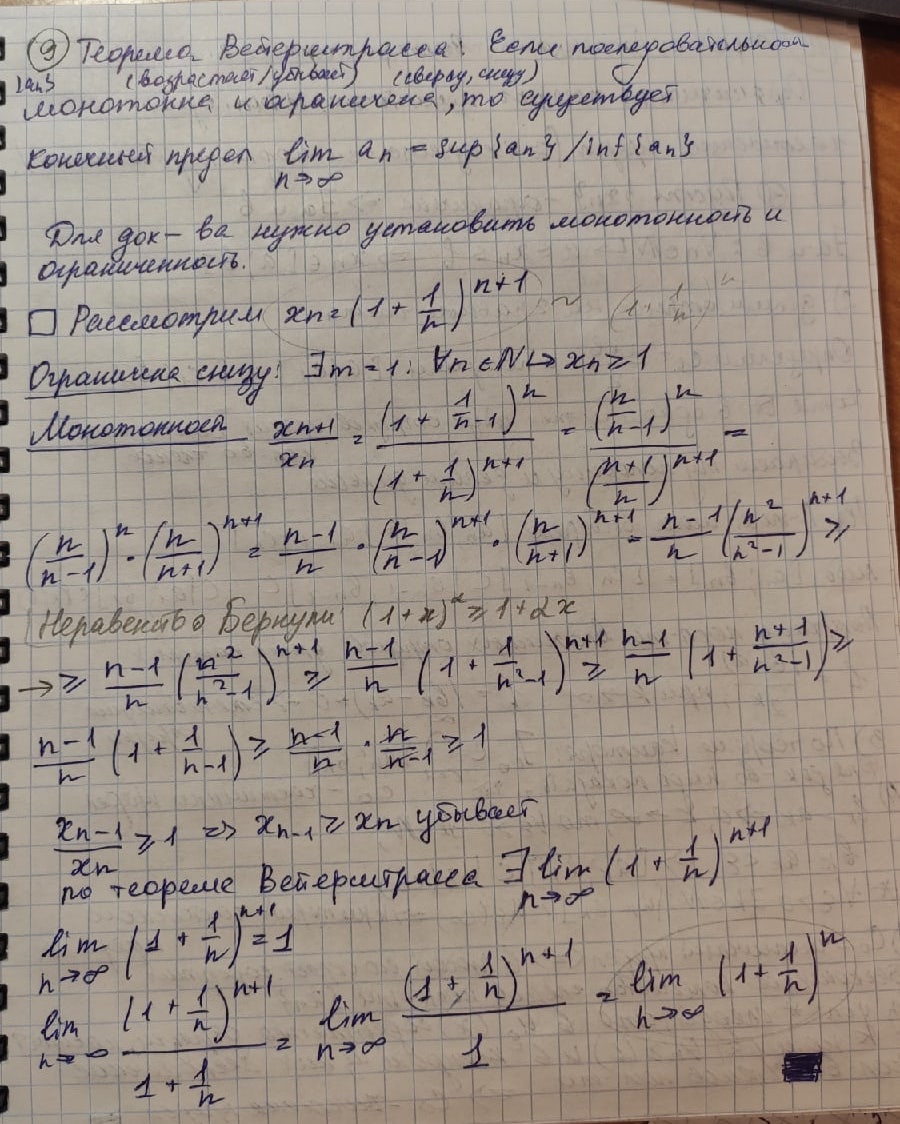 ⑨ Теорема Вейерштрасса: Если последовательность
{an} (возрастает/убывает) (сверху, снизу)
монотонна и ограничена, то существует
конечный предел lim n→∞ an = sup{an} / inf{an}
Для док-ва нужно установить монотонность и
ограниченность.
□ Рассмотрим xn = (1 + 1/n)^(n+1) ~ (1 + 1/n)^n
Ограничена снизу: ∃m = 1: ∀n ∈ N ↪ xn ≥ 1
Монотонность xn+1/xn = (1 + 1/n-1)^n / (1 + 1/n)^(n+1) = (n/n-1)^n / ((n+1)/n)^(n+1) =
(n/n-1)^n · (n/n+1)^(n+1) = n-1/n · (n/n-1)^(n+1) · (n/n+1)^(n+1) = n-1/n (n²/n²-1)^(n+1) ≥
Неравенство Бернули (1+x)^α ≥ 1+αx
→ ≥ n-1/n (n²/n²-1)^(n+1) ≥ n-1/n (1 + 1/n²-1)^(n+1) ≥ n-1/n (1 + n+1/n²-1) ≥
n-1/n (1 + 1/n-1) ≥ n-1/n · n/n-1 ≥ 1
xn-1/xn ≥ 1 => xn-1 ≥ xn убывает
по теореме Вейерштрасса ∃ lim n→∞ (1 + 1/n)^(n+1)
lim n→∞ (1 + 1/n)^(n+1) = 1
lim n→∞ (1 + 1/n)^(n+1) / (1 + 1/n) = lim n→∞ (1 + 1/n)^(n+1) / 1 = lim n→∞ (1 + 1/n)^n